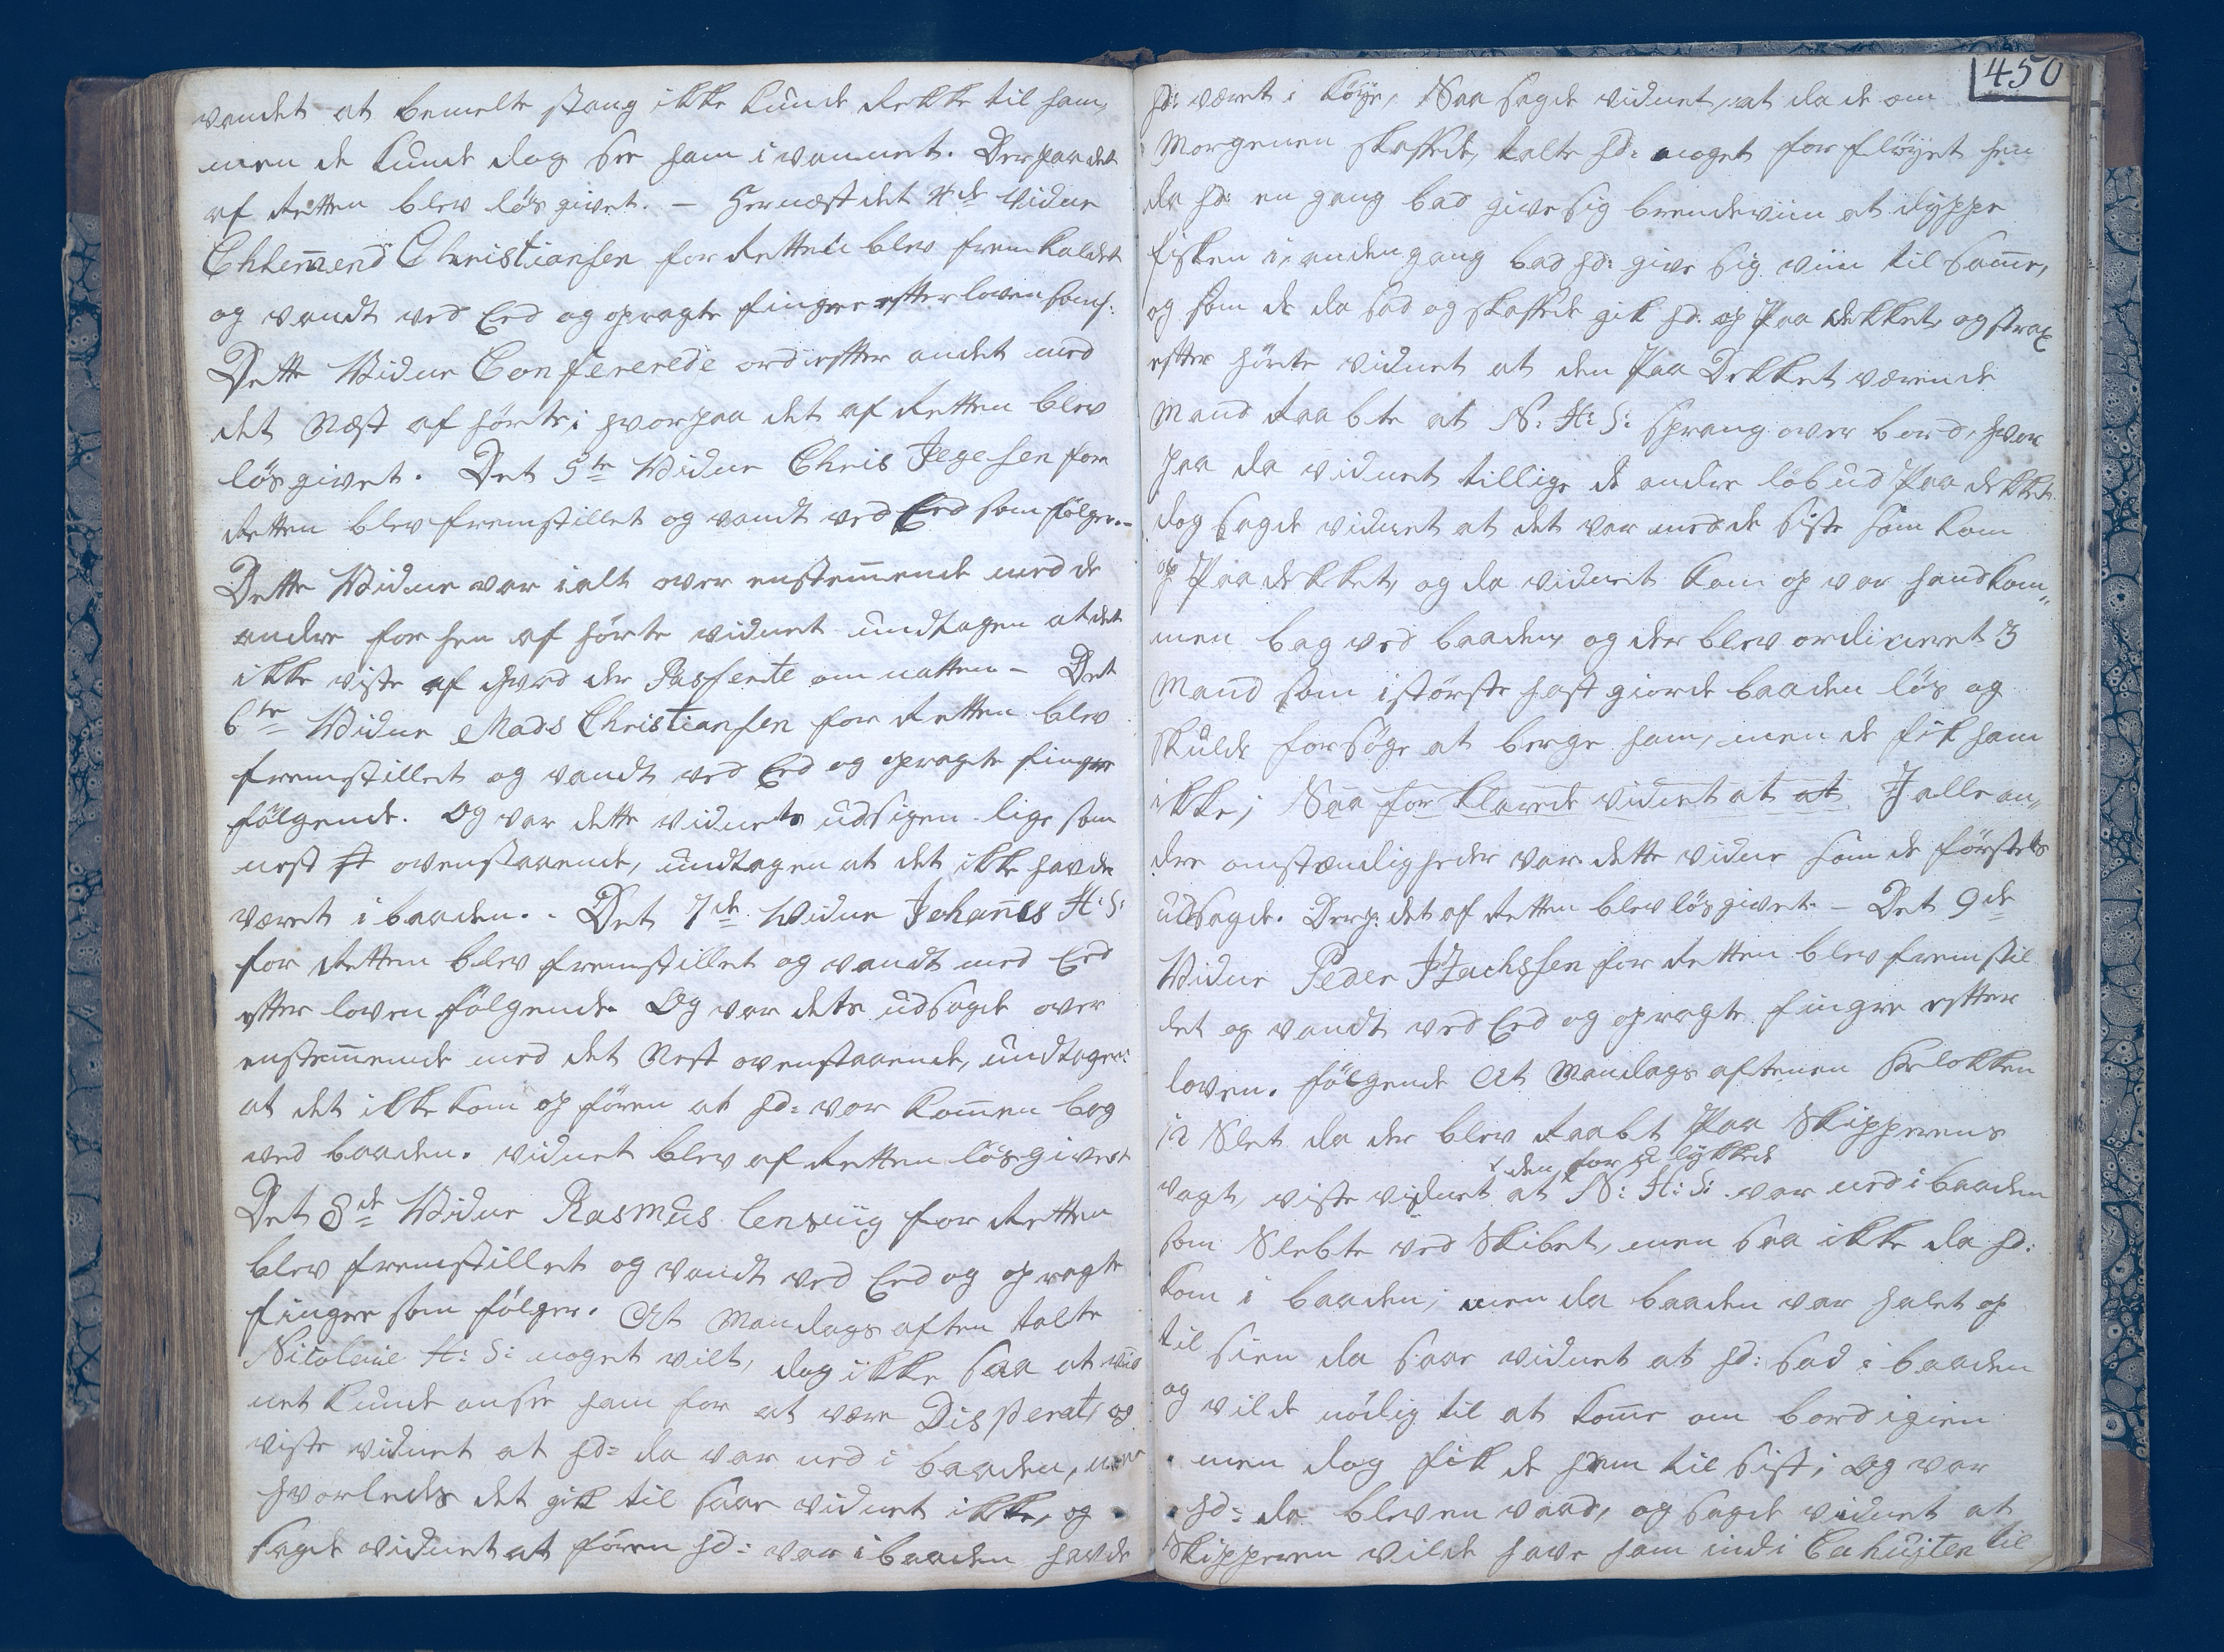 vandet at bemelte stang ikke kunde rekke til ham,
men de kunde dog see ham i vannet. Derpaa det
af Retten blev løs givet. – Hernæst det 4de Vidne
Christiansen for Retten blev frem kaldet
og vandt ved Eed og opragte fingre efter loven som f:
Dette Vidne Confererede ord efter andet med
det Næst af hørte; hvorpaa det af Retten blev
løs givet. Det 5te Vidne Chris Jegesen for
Retten blev fremstillet og vandt ved Eed som følger. –
Dette Vidne var i alt over enstem̄ende med de
andre for hen af hørte vidner undtagen at det
ikke viste af hvad der Passerte om natten – Det
6te Vidne Mads Christiansen for Retten blev
fremstillet og vandt ved Eed og opragte fingre
følgende. Og var dette vidnets udsigen lige som
nest ovenstaaende, undtagen at det ikke havde
været i baaden. – Det 7de Vidne Johan̄es H: S:
for Retten blev fremstillet og vandt med Eed
efter loven følgende. Og var dets udsagde over
enstem̄ende med det Nest ovenstaaende, undtagen:
at det ikke kom op føren at hd: var kom̄en bag
ved baaden. vidnet blev af Retten løsgivet
Det 8de Vidne Rasmus for Retten
blev fremstillet og vandt ved Eed og opragte
fingre som følger. At Mandags aften talte
Nicolaie H: S: noget vilt, dog ikke saa at vid
net kunde ansee ham for at være Disperat, og
viste vidnet at hd: da var ned i baaden, men
hvorledes det gik til saae vidnet ikke, og
sagde vidnet at føren hd: var i baaden havde
450
hd: været i Køye, Saa sagde vidnet, at da de om
Morgenen skaffede, talte hd: noget forfløyet hen
da hd: en gang bad give sig brendeviin at dyppe
fisken i, anden gang bad hd: give sig viin til sam̄e,
og som de da sad og skaffede gik hd: op Paa dekket, og strax
efter hørte vidnet at den Paa Dekket værende
Mand raabte at N: H: S: sprang over bord, hvor
paa da vidnet tillige de andre løb ud Paa dekket.
dog sagde vidnet at det var med de siste som kom
op Paa dekket, og da vidnet kom op var hand kom„
men bag ved baaden, og der blev ordineret 3
Mand som i største hast giorde baaden løs og
skulde forsøge at berge ham, men de fik ham
ikke; Saa for klarede vidnet at at I alle an„
dre omstændigheder var dette vidne som de førstes
udsagde. Derp: det af Retten blev løs givet. – Det 9de
Vidne Peder for Retten blev fremstil
let og vandt ved Eed og opragte fingre efter
loven. følgende At Mandags aftenen Klokken
12 Slet da der blev raabt Paa Skipperens
den for u lykkede
vagt, viste vidnet at N: H: S: var ned i baaden
som Slebte ved Skibet, men saa ikke da hd:
kom i baaden; men da baaden var halet op
til sien da saae vidnet at hd: sad i baaden
og vilde nødig til at kom̄e om bord igien
men dog fik de ham til sist; Og var
hd: da bleven vaad, og sagde vidnet at
Skipperen vilde have ham ind i Cahujten til